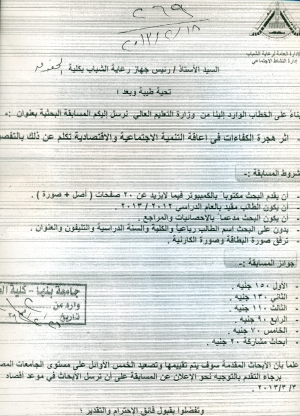 ٢٦٩
٢٠١٣/٢/١٨
الإدارة العامة لرعاية الشباب
إدارة النشاط الاجتماعي
السيد الأستاذ / رئيس جهاز رعاية الشباب بكلية الحقوق
تحية طيبة وبعد ،
بناءً على الخطاب الوارد إلينا من وزارة التعليم العالي نرسل إليكم المسابقة البحثية بعنوان :-
اثر هجرة الكفاءات في اعاقة التنمية الاجتماعية والاقتصادية تكلم عن ذلك بالتفصيل
شروط المسابقة :-
- ان يقدم البحث مكتوباً بالكمبيوتر فيما لايزيد عن ٢٠ صفحات ( أصل + صورة ) .
- أن يكون الطالب مقيد بالعام الدراسي ٢٠١٢ / ٢٠١٣
- أن يكون البحث مدعماً بالإحصائيات والمراجع .
- يدون على البحث اسم الطالب رباعياً والكلية والسنة الدراسية والتليفون والعنوان .
- ترفق صورة البطاقة وصورة الكارنية .
جوائز المسابقة :-
- الأول ١٥٠ جنيه .
- الثاني ١٣٠ جنيه .
- الثالث ١١٠ جنيه
- الرابع ٩٠ جنيه
- الخامس ٧٠ جنيه
- ابحاث مشاركة ٢٠ جنيه .
جامعة بنها - كلية
وارد من
تاريخ
علماً بأن الأبحاث المقدمة سوف يتم تقييمها وتصعيد الخمس الأوائل على مستوى الجامعات
برجاء التقدم بالتوجيه نحو الإعلان عن المسابقة على أن ترسل الأبحاث في موعد أقصاه
٢٠١٣/٣/٣ .
وتفضلوا بقبول فائق الإحترام والتقدير ؛